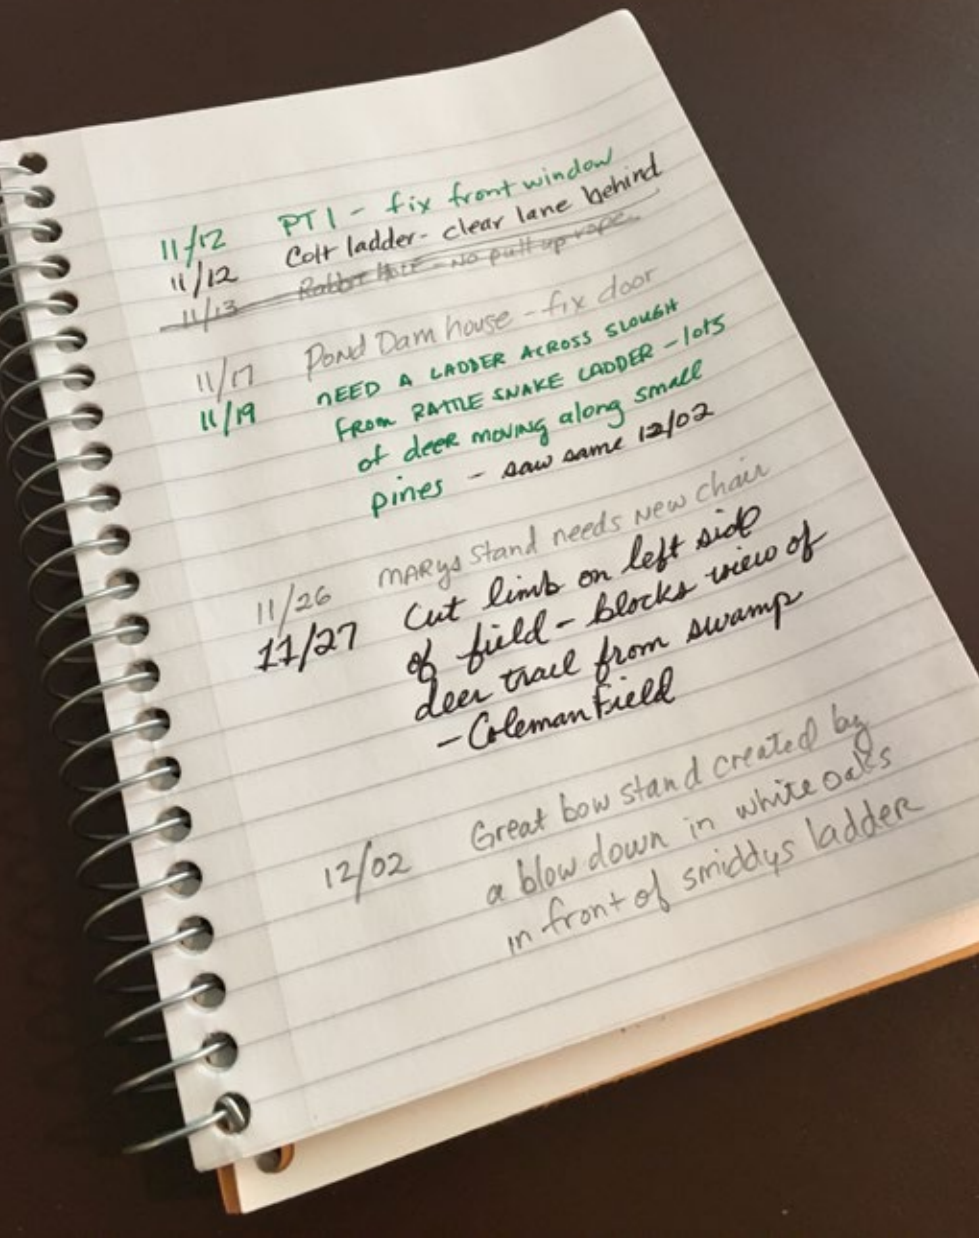 11/12 PT 1 - fix front window
11/12 Colt ladder - clear lane behind
11/13 Rabbit Hole - No pull up rope
11/17 Pond Dam house - fix door
11/19 NEED A LADDER ACROSS SLOUGH
FROM RATTLE SNAKE LADDER - lots
of deer moving along small
pines - saw same 12/02
11/26 MARYs Stand needs New chair
11/27 Cut limb on left side
of field - blocks view of
deer trail from swamp
- Coleman Field
12/02 Great bow stand created by
a blow down in white oaks
in front of smiddys ladder